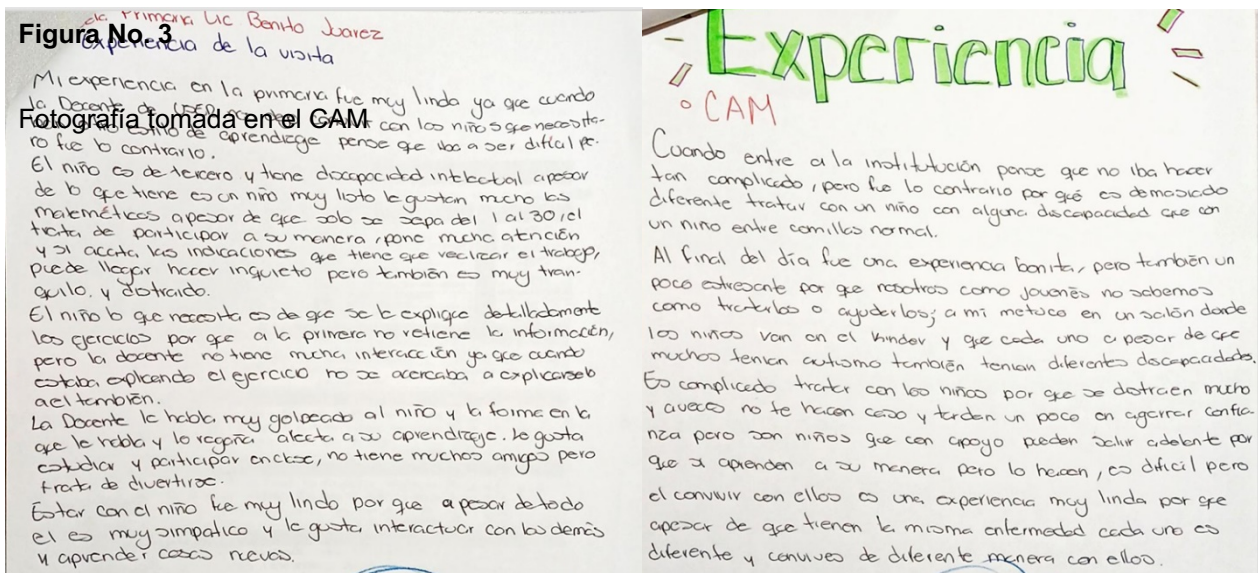 Esc. Primaria Lic Benito Juarez
Figura No. 3
experiencia de la visita
Mi experiencia en la primaria fue muy linda ya que cuando
la Docente de USER
Fotografía tomada en el CAM
con los niños que necesita-
estilo de aprendizage pense que iba a ser difícil pe-
ro fue lo contrario.
El niño es de tercero y tiene discapacidad intelectual apesar
de lo que tiene es un niño muy listo le gustan mucho las
matemáticas apesar de que solo se sepa del 1 al 30, el
trata de participar a su manera, pone mucha atención
y si acata las indicaciones que tiene que realizar el trabajo,
puede llegar hacer inquieto pero también es muy tran-
quilo. y distraido.
El niño lo que necesita es de que se le explique detalladamente
los ejercicios por que a la primera no retiene la información,
pero la docente no tiene mucha interacción ya que cuando
estaba explicando el ejercicio no se acercaba a explicarselo
a el también.
La Docente le habla muy golpeado al niño y la forma en la
que le habla y lo regaña afecta a su aprendizage. Le gusta
estudiar y participar en clase, no tiene muchos amigos pero
trata de divertirse.
Estar con el niño fue muy lindo por que apesar de todo
el es muy simpatico y le gusta interactuar con los demés
y aprender cosas nuevas.
Experiencia
CAM
Cuando entre a la institutución pense que no iba hacer
tan complicado, pero fue lo contrario por qué es demasiado
diferente tratar con un niño con alguna discapacidad que con
un nino entre comillas normal.
Al final del día fue una experiencia bonita, pero también un
poco estresante por que nosotros como jovenes no sabemos
como tratarlos o ayudarlos; a mi me toco en un salón donde
los niños van en el kinder y que cada uno a pesar de que
muchos tenian autismo también tenian diferentes discapacidades.
Es complicado tratar con los niños por que se distraen mucho
y aveces no te hacen caso y tardan un poco en agarrar confia
nza pero son niños que con apoyo pueden salir adelante por
que si aprenden a su manera pero lo hacen, es dificil pero
el convivir con ellos es una experiencia muy linda por que
apesar de que tienen la misma enfermedad cada uno es
diferente y convives de diferente manera con ellos.